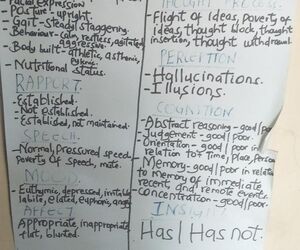 Facial expression
- Posture - upright.
- Gait - Steady, staggering.
- Behaviour - calm, restless, agitated,
aggressive.
- Body built - athletic, asthenic,
pyknic.
- Nutritional status.
RAPPORT.
- Established.
- Not established.
- Established, not maintained.
SPEECH.
- Normal, pressured speech,
poverty of speech, mute.
MOOD
- Euthymic, depressed, irritable
labile, elated, euphoric, angry
AFFECT
Appropriate, inappropriate,
flat, blunted.
THOUGHT PROCESS.
- Flight of Ideas, poverty of
ideas, thought block, thought
insertion, thought withdrawal.
PERCEPTION
- Hallucinations.
- Illusions.
COGNITION
- Abstract reasoning - good/poor
- Judgement - good/poor
- Orientation - good/poor in
relation to: time, place, person
- Memory - good/poor in relation
to memory of immediate
recent and remote events.
- Concentration - good/poor.
INSIGHT
Has/Has not.